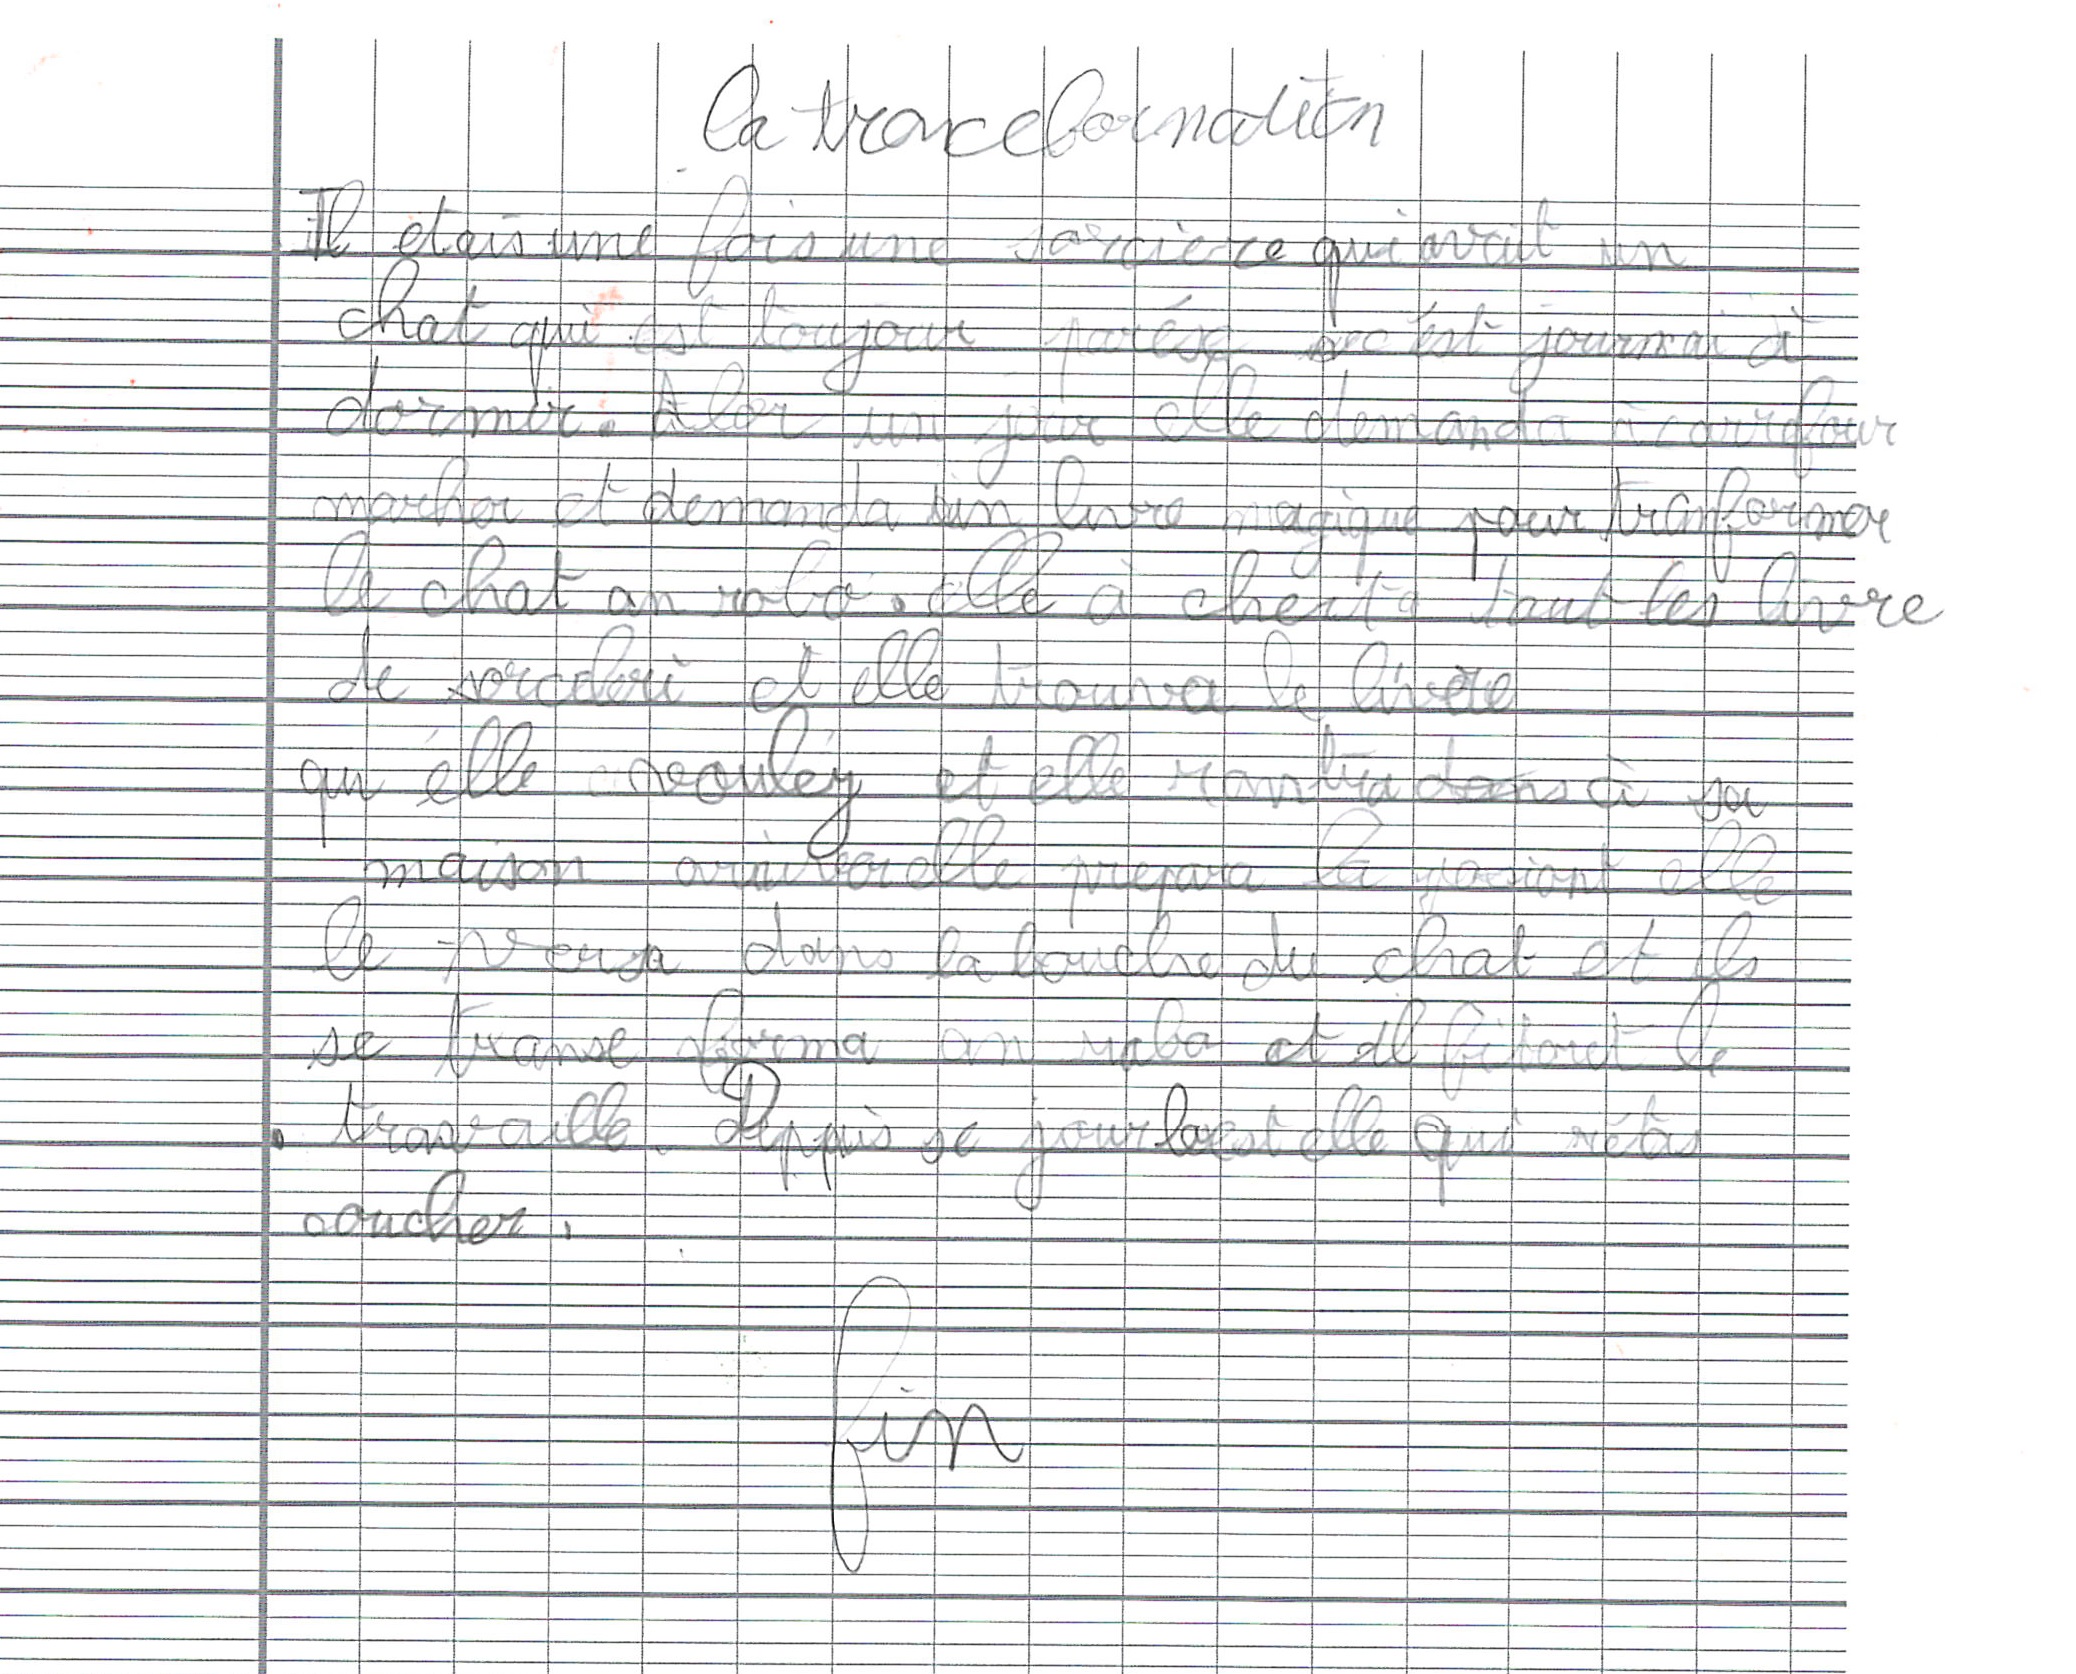 la tranceformation
Il étais une fois une sorcière qui avait un
chat qui est toujour parése c'est journai à
dormir. Alor un jour elle demanda à carrefour
marher et demanda un livre magique pour tranformer
le chat an robo. elle à cherte tout les livre
de sorceleri et elle trouva le livre
qu'élle vouley et elle rantra dans à sa
maison ariver elle prepara la posiont elle
le versa dans la bouche du chat et ils
se transe forma an robo et il fit tout le
travaille. Deppuis se jour la est elle qui rétas
coucher.
fin